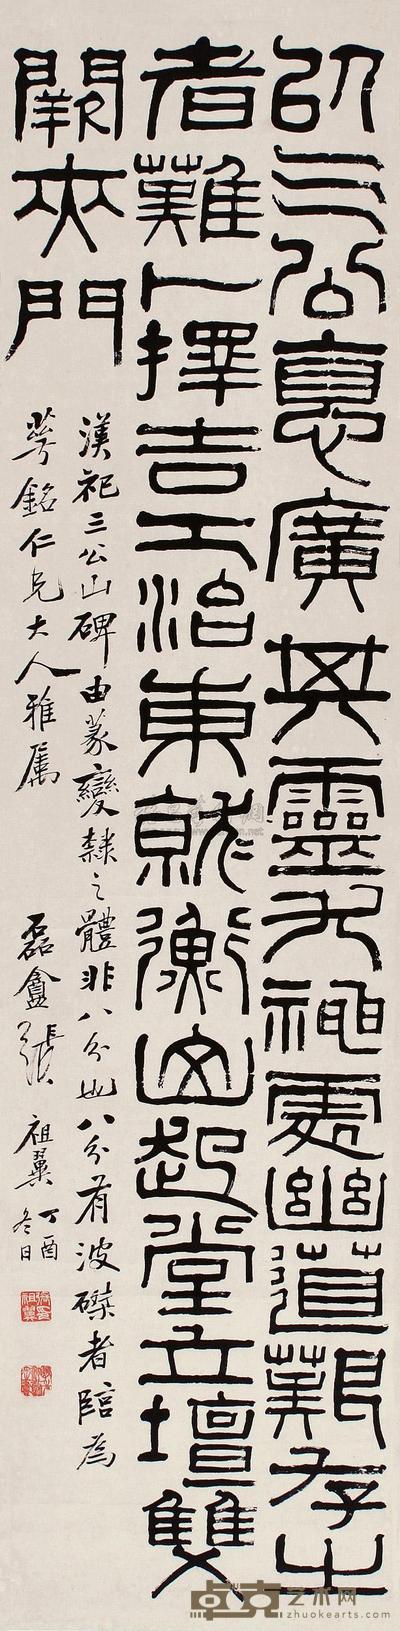 以三公悳廣其靈尤神處幽道艱存之
者難卜擇吉工治東就衡山起堂立壇雙
闕夾門
漢祀三公山碑由篆變隸之體非八分也八分有波磔者臨為
銘仁兄大人雅属
磊盦張祖翼
丁酉
冬日
卓克艺术网
zhuokearts.com